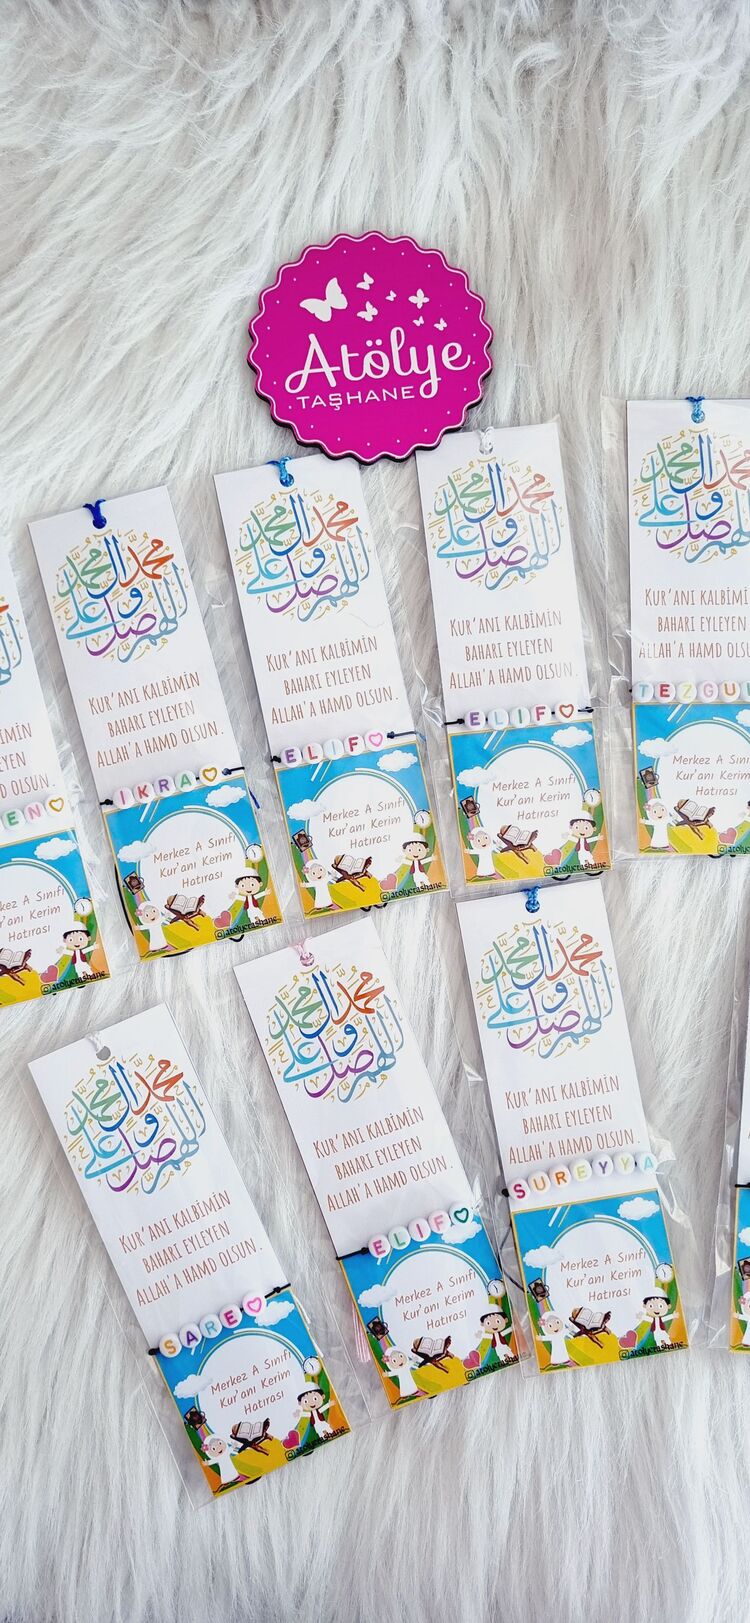 Atölye
TAŞHANE
اللهم صل على محمد وآل محمد
KUR'ANI KALBİMİN
BAHARI EYLEYEN
ALLAH'A HAMD OLSUN.
IKRA
Merkez A Sınıfı
Kur'anı Kerim
Hatırası
atolyetashane
اللهم صل على محمد وآل محمد
KUR'ANI KALBİMİN
BAHARI EYLEYEN
ALLAH'A HAMD OLSUN.
ELIF
Merkez A Sınıfı
Kur'anı Kerim
Hatırası
atolyetashane
اللهم صل على محمد وآل محمد
KUR'ANI KALBİMİN
BAHARI EYLEYEN
ALLAH'A HAMD OLSUN.
ELIF
Merkez A Sınıfı
Kur'anı Kerim
Hatırası
atolyetashane
اللهم صل على محمد وآل محمد
KUR'ANI
BAHARI EYLEYEN
ALLAH'A HAMD
TEZGUL
Merkez A Sınıfı
Kur'anı Kerim
Hatırası
atolyetashane
OLSUN.
EN
Sınıfı
Kerim
Hatırası
atolyetashane
اللهم صل على محمد وآل محمد
KUR'ANI KALBİMİN
BAHARI EYLEYEN
ALLAH'A HAMD OLSUN.
SARE
Merkez A Sınıfı
Kur'anı Kerim
Hatırası
atolyetashane
اللهم صل على محمد وآل محمد
KUR'ANI KALBİMİN
BAHARI EYLEYEN
ALLAH'A HAMD OLSUN.
ELIF
Merkez A Sınıfı
Kur'anı Kerim
Hatırası
atolyetashane
اللهم صل على محمد وآل محمد
KUR'ANI KALBİMİN
BAHARI EYLEYEN
ALLAH'A HAMD OLSUN.
SUREYYA
Merkez A Sınıfı
Kur'anı Kerim
Hatırası
atolyetashane